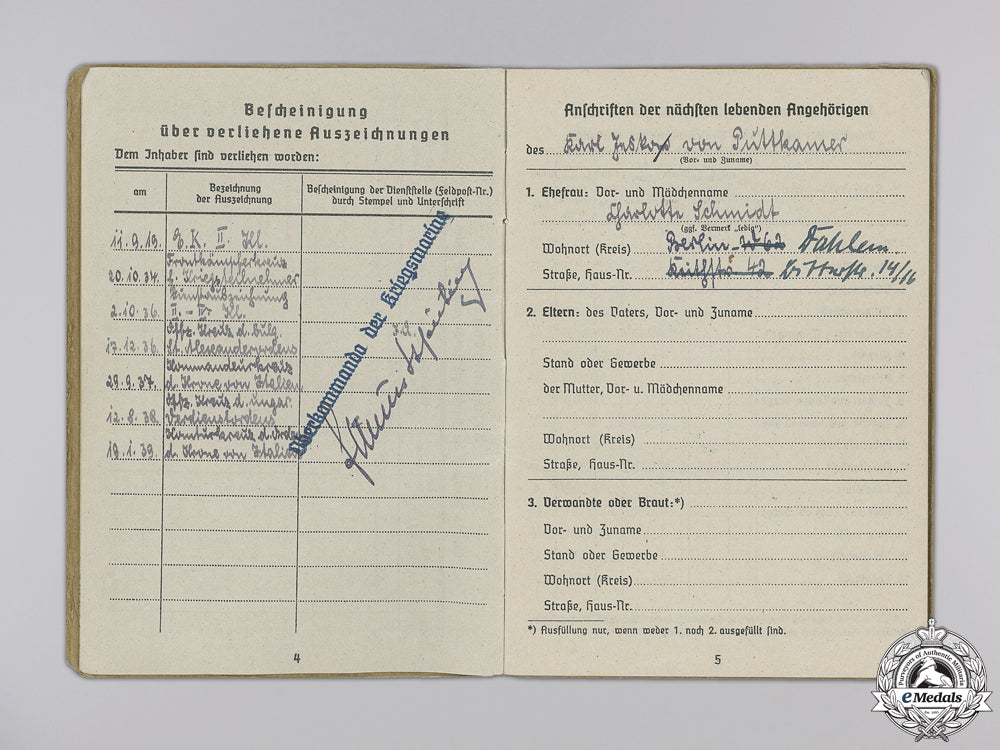 Bescheinigung
über verliehene Auszeichnungen
Dem Inhaber sind verliehen worden:
am
Bezeichnung
der Auszeichnung
Bescheinigung der Dienststelle (Feldpost-Nr.)
durch Stempel und Unterschrift
11.9.19. E.K. II. Kl.
Frontkämpferkreuz
20.10.34. f. Kriegsteilnehmer
Dienstauszeichnung
2.10.36. II.-IV. Kl.
Offz. Kreuz d. bulg.
17.12.36. St. Alexanderordens
Kommandeurkreuz
29.9.37. d. Krone von Italien
Offz. Kreuz d. ungar.
12.8.38. Verdienstordens
d. Orden
19.1.39. d. Krone von Italien
Oberkommando der Kriegsmarine
4
Anschriften der nächsten lebenden Angehörigen
des Karl Jesko von Puttkamer
(Vor- und Zuname)
1. Ehefrau: Vor- und Mädchenname
Charlotte Schmidt
(ggf. Vermerk „ledig")
Wohnort (Kreis) Berlin-W 62 Dahlem
Straße, Haus-Nr. Keithstr. 42 14/16
2. Eltern: des Vaters, Vor- und Zuname
Stand oder Gewerbe
der Mutter, Vor- u. Mädchenname
Wohnort (Kreis)
Straße, Haus-Nr.
3. Verwandte oder Braut:*)
Vor- und Zuname
Stand oder Gewerbe
Wohnort (Kreis)
Straße, Haus-Nr.
*) Ausfüllung nur, wenn weder 1. noch 2. ausgefüllt sind.
5
Purveyors of Authentic Militaria
eMedals